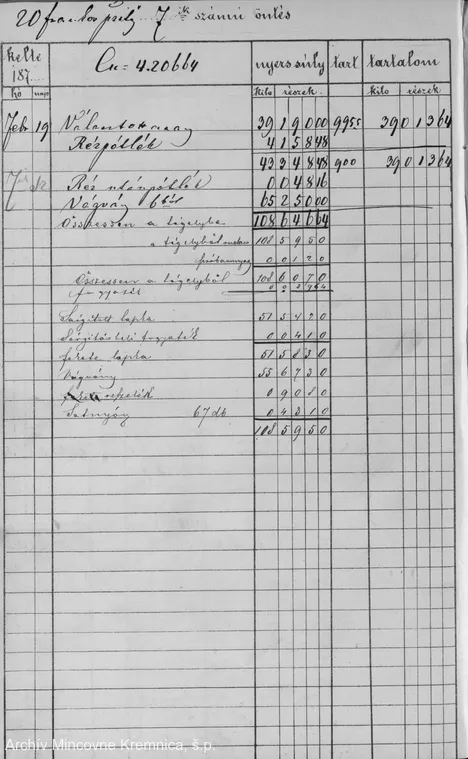 20 frankos 7ik számu öntés
kelte 187 Cu = 4.20664 nyers súly tart tartalom
hó nap kilo részek kilo részek
Febr 19 Választottarany 39 1 9 0 00 995.5 39 0 1 3 64
Rézpótlék 4 1 5 8 48
43 3 4 8 48 900 39 0 1 3 64
Réz utánpótlék 0 0 4 8 16
Vágvány 65 2 5 0 00
Összessen a tégelyba 108 6 4 6 64
a tégelyből 108 5 9 5 0
0 0 1 2 0
Összessen a tégelyből 108 6 0 7 0
fogyaték
Sárgitott lapka 51 5 4 2 0
fogyaték 0 0 4 1 0
fekete lapka 51 5 8 3 0
Vágvány 55 6 7 3 0
0 9 0 8 0
67 db 0 4 3 1 0
108 5 9 5 0
Archív Mincovne Kremnica, š.p.